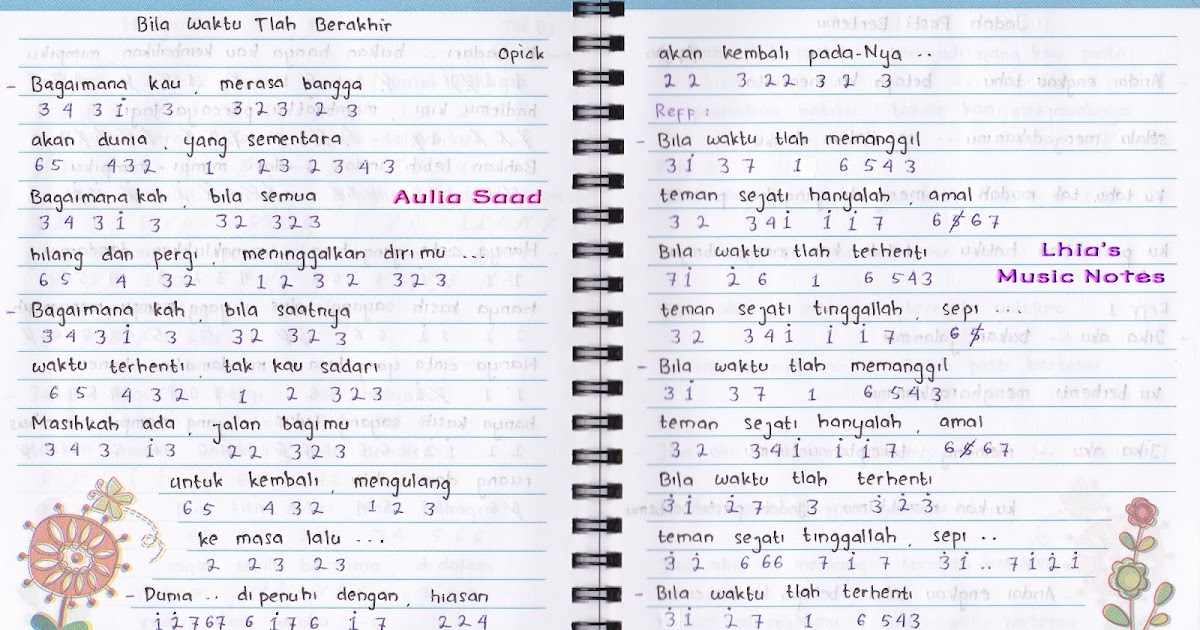 Bila waktu Tlah Berakhir
Opick
- Bagaimana kau merasa bangga
3 4 3 i 3 3 2 3 2 3
akan dunia, yang sementara.
6 5 4 3 2 1 2 3 2 3 4 3
Bagaimana kah bila semua
Aulia Saad
3 4 3 i 3 3 2 3 2 3
hilang dan pergi, meninggalkan dirimu ...
6 5 4 3 2 1 2 3 2 3 2 3
- Bagaimana kah, bila saatnya
3 4 3 i 3 3 2 3 2 3
waktu terhenti, tak kau sadari
6 5 4 3 2 1 2 3 2 3
Masihkah ada, jalan bagimu
3 4 3 i 3 2 2 3 2 3
untuk kembali, mengulang
6 5 4 3 2 1 2 3
ke masa lalu ...
2 2 3 2 3
- Dunia .. dipenuhi dengan, hiasan
i 2 7 6 7 6 i 7 6 i 7 2 2 4
akan kembali pada-Nya ..
2 2 3 2 2 3 2 3
Reff :
- Bila waktu tlah memanggil
3 i 3 7 1 6 5 4 3
teman sejati hanyalah, amal
3 2 3 4 i i i 7 6 5 6 7
Bila waktu tlah terhenti
Lhia's
7 i 2 6 1 6 5 4 3
Music Notes
teman sejati tinggallah sepi ....
3 2 3 4 i i i 7 6 5
- Bila waktu tlah memanggil
3 i 3 7 1 6 5 4 3
teman sejati hanyalah, amal
3 2 3 4 i i i 7 6 5 6 7
Bila waktu tlah terhenti
3 i 2 7 3 3 2 3
teman sejati tinggallah, sepi ..
3 2 6 6 6 7 i 7 3 i .. 7 i 2 i
- Bila waktu tlah terhenti
3 i 2 7 1 6 5 4 3